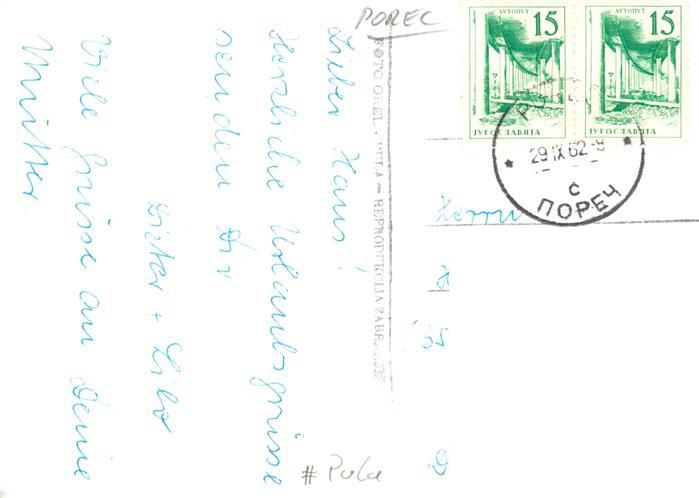 POREC
АУТОПУТ
15
ЈУГОСЛАВИЈА
АУТОПУТ
15
ЈУГОСЛАВИЈА
29 IX 62-9
с
ПОРЕЧ
Lieber Hans!
Herzliche Urlaubsgrüsse
senden Dir
Dieter + Lilo
Viele Grüsse an Deine
Mutter
FOTO OREL - PULA - REPRODUKCIJA ZABRANJENA
Herrn
H
(65
D
# Pula